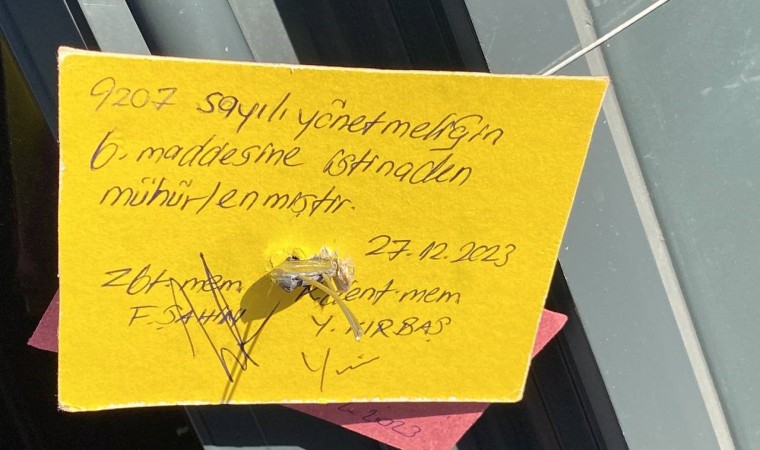 9207 sayılı yönetmeliğin
6. maddesine istinaden
mühürlenmiştir.
27.12.2023
Zbt. mem
F. ŞAHİN
Y. KIRBAŞ
2023